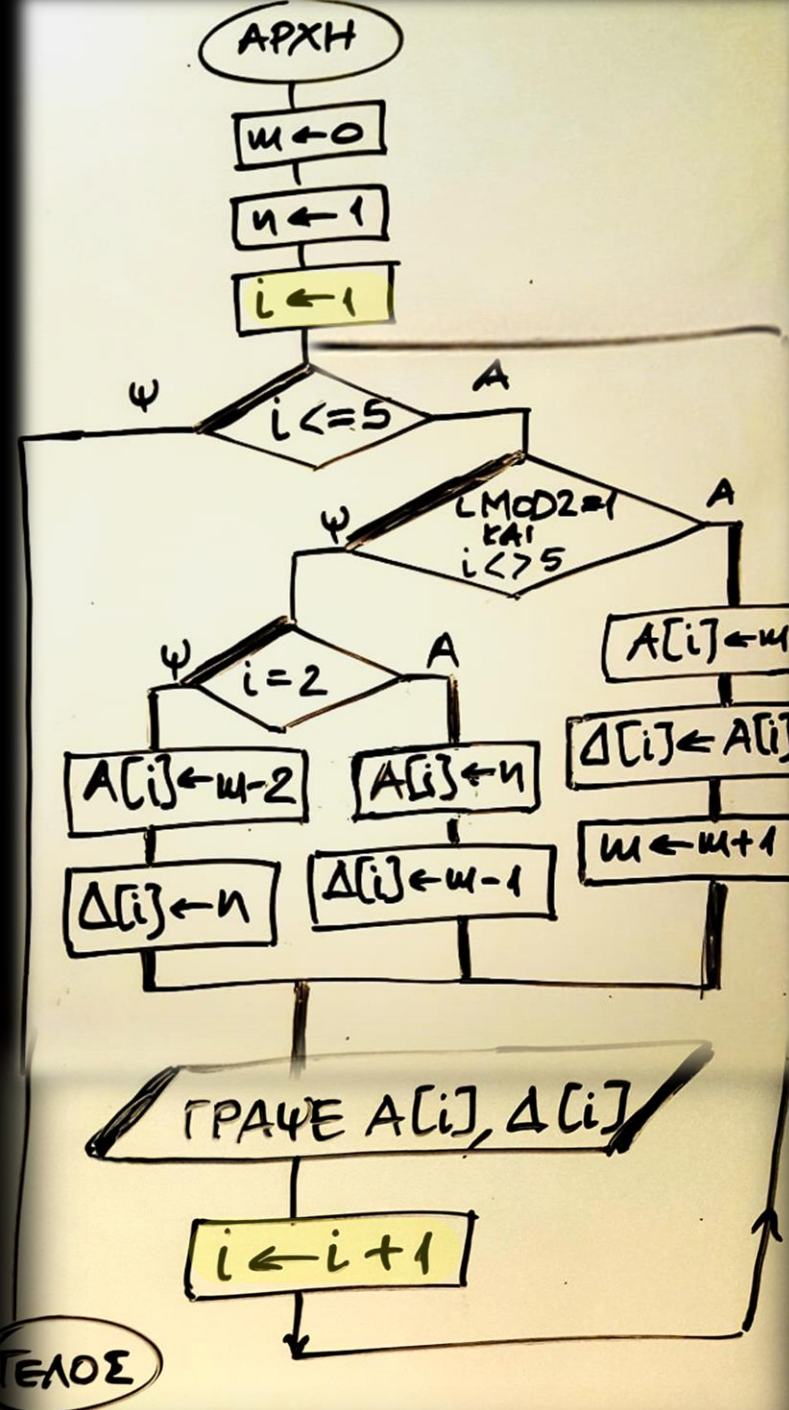 ΑΡΧΗ
m ← 0
n ← 1
i ← 1
Ψ
Α
i <= 5
Ψ
Α
i MOD2=1
ΚΑΙ
i <> 5
Ψ
Α
i = 2
A[i] ← m
Δ[i] ← A[i]
m ← m+1
A[i] ← m-2
A[i] ← n
Δ[i] ← n
Δ[i] ← m-1
ΓΡΑΨΕ A[i], Δ[i]
i ← i + 1
ΤΕΛΟΣ